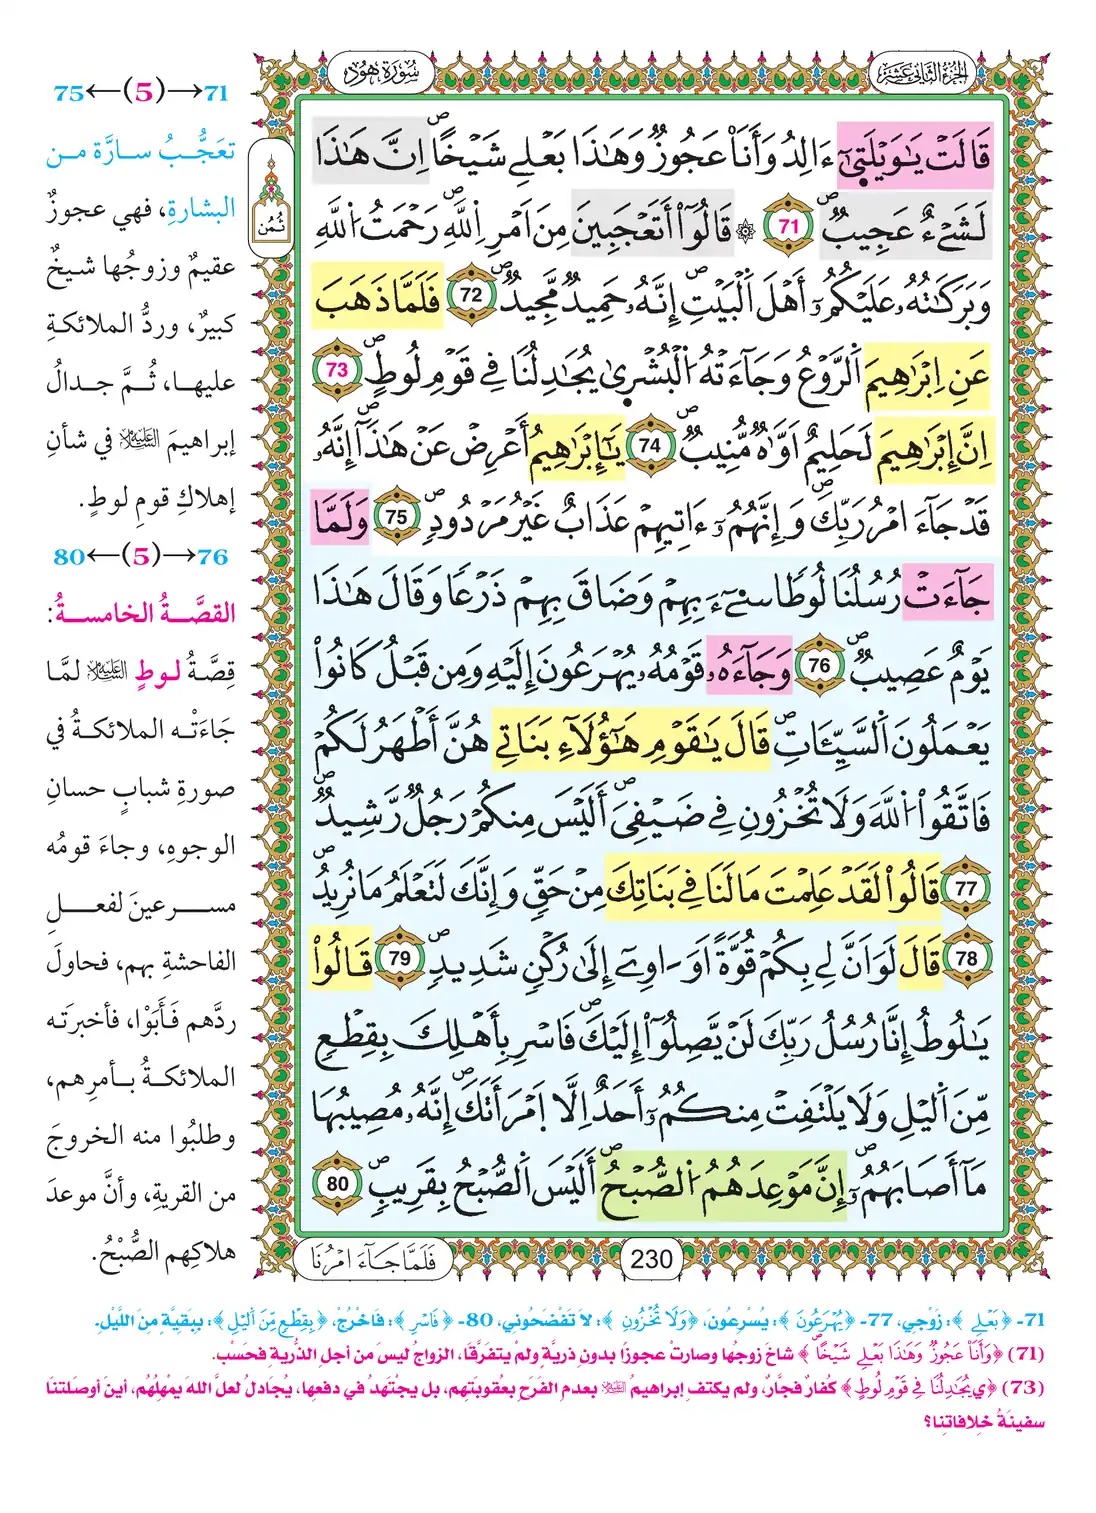 الجزء الثاني عشر
سورة هود
قَالَتْ يَٰوَيْلَتَىٰٓ ءَالِدُ وَأَنَا۠ عَجُوزٌ وَهَٰذَا بَعْلِے شَيْخًاۖ اِنَّ هَٰذَا
لَشَےْءٌ عَجِيبٌۖ 71 ۞ قَالُوٓاْ أَتَعْجَبِينَ مِنَ اَمْرِ اِ۬للَّهِۖ رَحْمَتُ اُ۬للَّهِ
وَبَرَكَٰتُهُۥ عَلَيْكُمُۥٓ أَهْلَ اَ۬لْبَيْتِۖ إِنَّهُۥ حَمِيدٌ مَّجِيدٌۖ 72 فَلَمَّا ذَهَبَ
عَنِ اِبْرَٰهِيمَ اَ۬لرَّوْعُ وَجَآءَتْهُ اُ۬لْبُشْر۪ىٰ يُجَٰدِلُنَا فِے قَوْمِ لُوطٍۖ 73
اِنَّ إِبْرَٰهِيمَ لَحَلِيمٌ اَوَّٰهٌ مُّنِيبٌۖ 74 يَٰٓإِبْرَٰهِيمُ أَعْرِضْ عَنْ هَٰذَآۖ إِنَّهُۥ
قَدْ جَآءَ امْرُ رَبِّكَۖ وَإِنَّهُمُۥٓ ءَاتِيهِمْ عَذَابٌ غَيْرُ مَرْدُودٍۖ 75 وَلَمَّا
جَآءَتْ رُسُلُنَا لُوطًا سِےٓءَ بِهِمْ وَضَاقَ بِهِمْ ذَرْعًا وَقَالَ هَٰذَا
يَوْمٌ عَصِيبٌۖ 76 وَجَآءَهُۥ قَوْمُهُۥ يُهْرَعُونَ إِلَيْهِ وَمِن قَبْلُ كَانُواْ
يَعْمَلُونَ اَ۬لسَّيِّـَٔاتِۖ قَالَ يَٰقَوْمِ هَٰٓؤُلَآءِ بَنَاتِے هُنَّ أَطْهَرُ لَكُمْ
فَاتَّقُواْ اُ۬للَّهَ وَلَا تُخْزُونِ فِے ضَيْفِيَۖ أَلَيْسَ مِنكُمْ رَجُلٌ رَّشِيدٌۖ
77 قَالُواْ لَقَدْ عَلِمْتَ مَا لَنَا فِے بَنَاتِكَ مِنْ حَقٍّ وَإِنَّكَ لَتَعْلَمُ مَا نُرِيدُۖ
78 قَالَ لَوَ اَنَّ لِے بِكُمْ قُوَّةً اَوَ اٰوِےٓ إِلَىٰ رُكْنٍ شَدِيدٍۖ 79 قَالُواْ
يَٰلُوطُ إِنَّا رُسُلُ رَبِّكَ لَنْ يَّصِلُوٓاْ إِلَيْكَۖ فَاسْرِ بِأَهْلِكَ بِقِطْعٍ
مِّنَ اَ۬ليْلِ وَلَا يَلْتَفِتْ مِنكُمُۥٓ أَحَدٌ اِلَّا اَ۪مْرَأَتَكَۖ إِنَّهُۥ مُصِيبُهَا
مَآ أَصَابَهُمُۥٓۖ إِنَّ مَوْعِدَهُمُ اُ۬لصُّبْحُۖ أَلَيْسَ اَ۬لصُّبْحُ بِقَرِيبٍۖ 80
230
فَلَمَّا جَآءَ امْرُنَا
ثُمُن
71→(5)←75
تعَجُّبُ سارَّة من
البشارةِ، فهي عجوزٌ
عقيمٌ وزوجُها شيخٌ
كبيرٌ، وردُّ الملائكة
عليها، ثُمَّ جدالُ
إبراهيمَ عليه السلام في شأنِ
إهلاكِ قومِ لوطٍ.
76→(5)←80
القصَّةُ الخامسةُ:
قِصَّةُ لوطٍ عليه السلام لمَّا
جَاءَتْه الملائكةُ في
صورةِ شبابٍ حسانِ
الوجوهِ، وجاءَ قومُه
مسرعينَ لفعلِ
الفاحشةِ بهم، فحاولَ
ردَّهم فَأَبَوْا، فأخبرَته
الملائكةُ بأمرِهم،
وطلبُوا منه الخروجَ
من القريةِ، وأنَّ موعدَ
هلاكِهم الصُّبْحُ.
71- ﴿بَعْلِے﴾: زَوْجِي، 77- ﴿يُهْرَعُونَ﴾: يُسْرِعُونَ، ﴿وَلَا تُخْزُونِ﴾: لا تَفْضَحُونِي، 80- ﴿فَاسْرِ﴾: فَاخْرُجْ، ﴿بِقِطْعٍ مِّنَ اَ۬ليْلِ﴾: بِبَقِيَّةٍ مِنَ اللَّيْلِ.
(71) ﴿وَأَنَا۠ عَجُوزٌ وَهَٰذَا بَعْلِے شَيْخًاۖ﴾ شاخَ زوجُها وصارتْ عجوزًا بدونِ ذريةٍ ولمْ يتفرَّقَا، الزواج ليسَ من أجلِ الذُّريةِ فحَسْب.
(73) ﴿يُجَٰدِلُنَا فِے قَوْمِ لُوطٍ﴾ كُفارٌ فجَّارٌ، ولم يكتف إبراهيمُ عليه السلام بعدم الفَرَحِ بعُقوبتِهم، بل يجتَهدُ في دفعِها، يُجادلُ لعلَّ اللهَ يمْهِلُهُم، أينَ أوصَلتنَا
سفينةُ خلافاتِنا؟